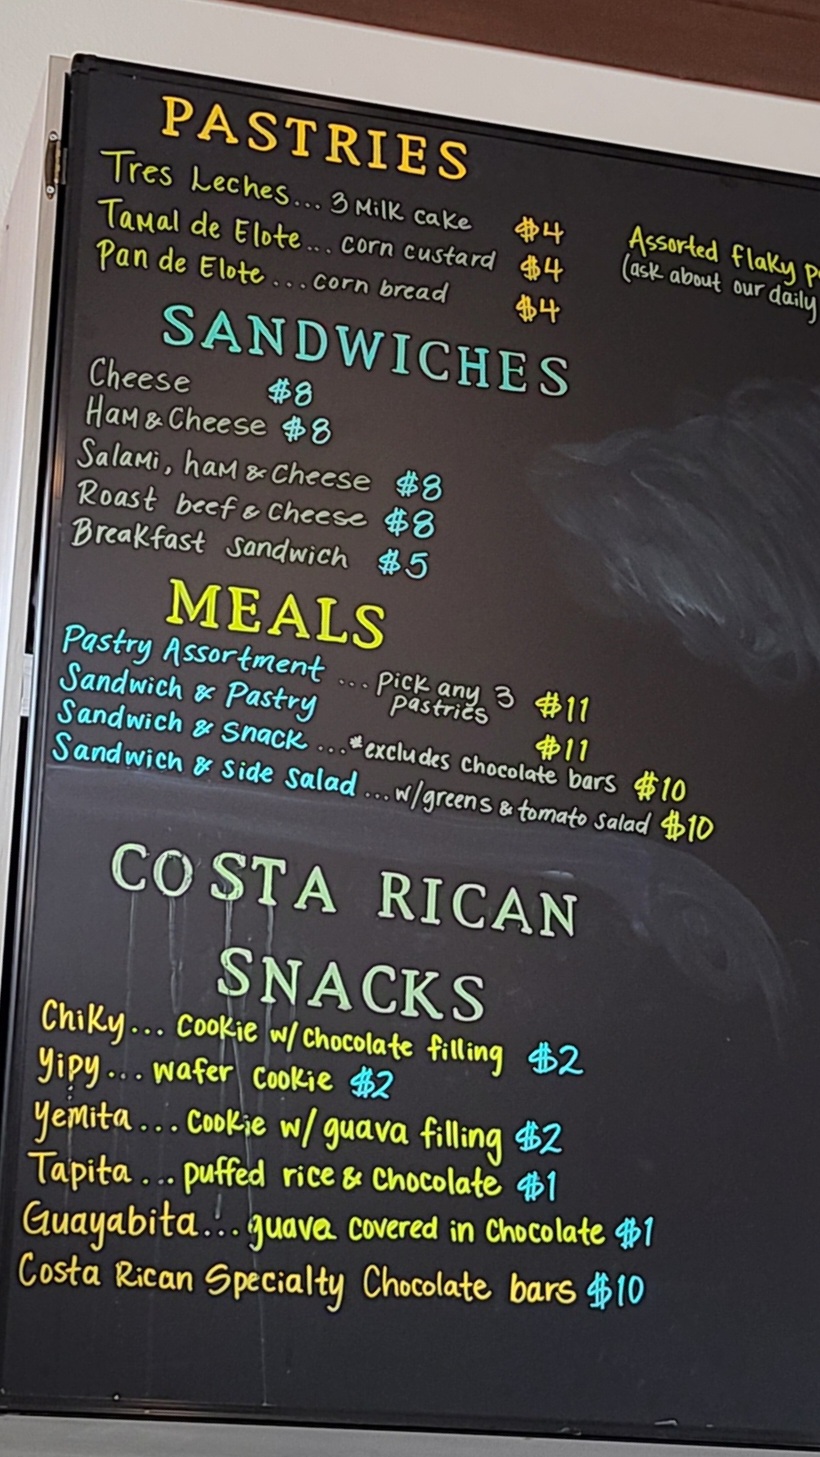 PASTRIES
Tres Leches... 3 Milk cake $4
Tamal de Elote... corn custard $4
Pan de Elote... corn bread $4
Assorted flaky
(ask about our daily
SANDWICHES
Cheese $8
Ham & Cheese $8
Salami, ham & Cheese $8
Roast beef & Cheese $8
Breakfast Sandwich $5
MEALS
Pastry Assortment ... Pick any 3 $11
Pastries
Sandwich & Pastry $11
Sandwich & Snack ... *excludes chocolate bars $10
Sandwich & Side Salad ... w/greens & tomato salad $10
COSTA RICAN
SNACKS
Chiky... Cookie w/chocolate filling $2
Yipy... wafer cookie $2
Yemita ... cookie w/ guava filling $2
Tapita ... puffed rice & chocolate $1
Guayabita... guava covered in chocolate $1
Costa Rican Specialty Chocolate bars $10